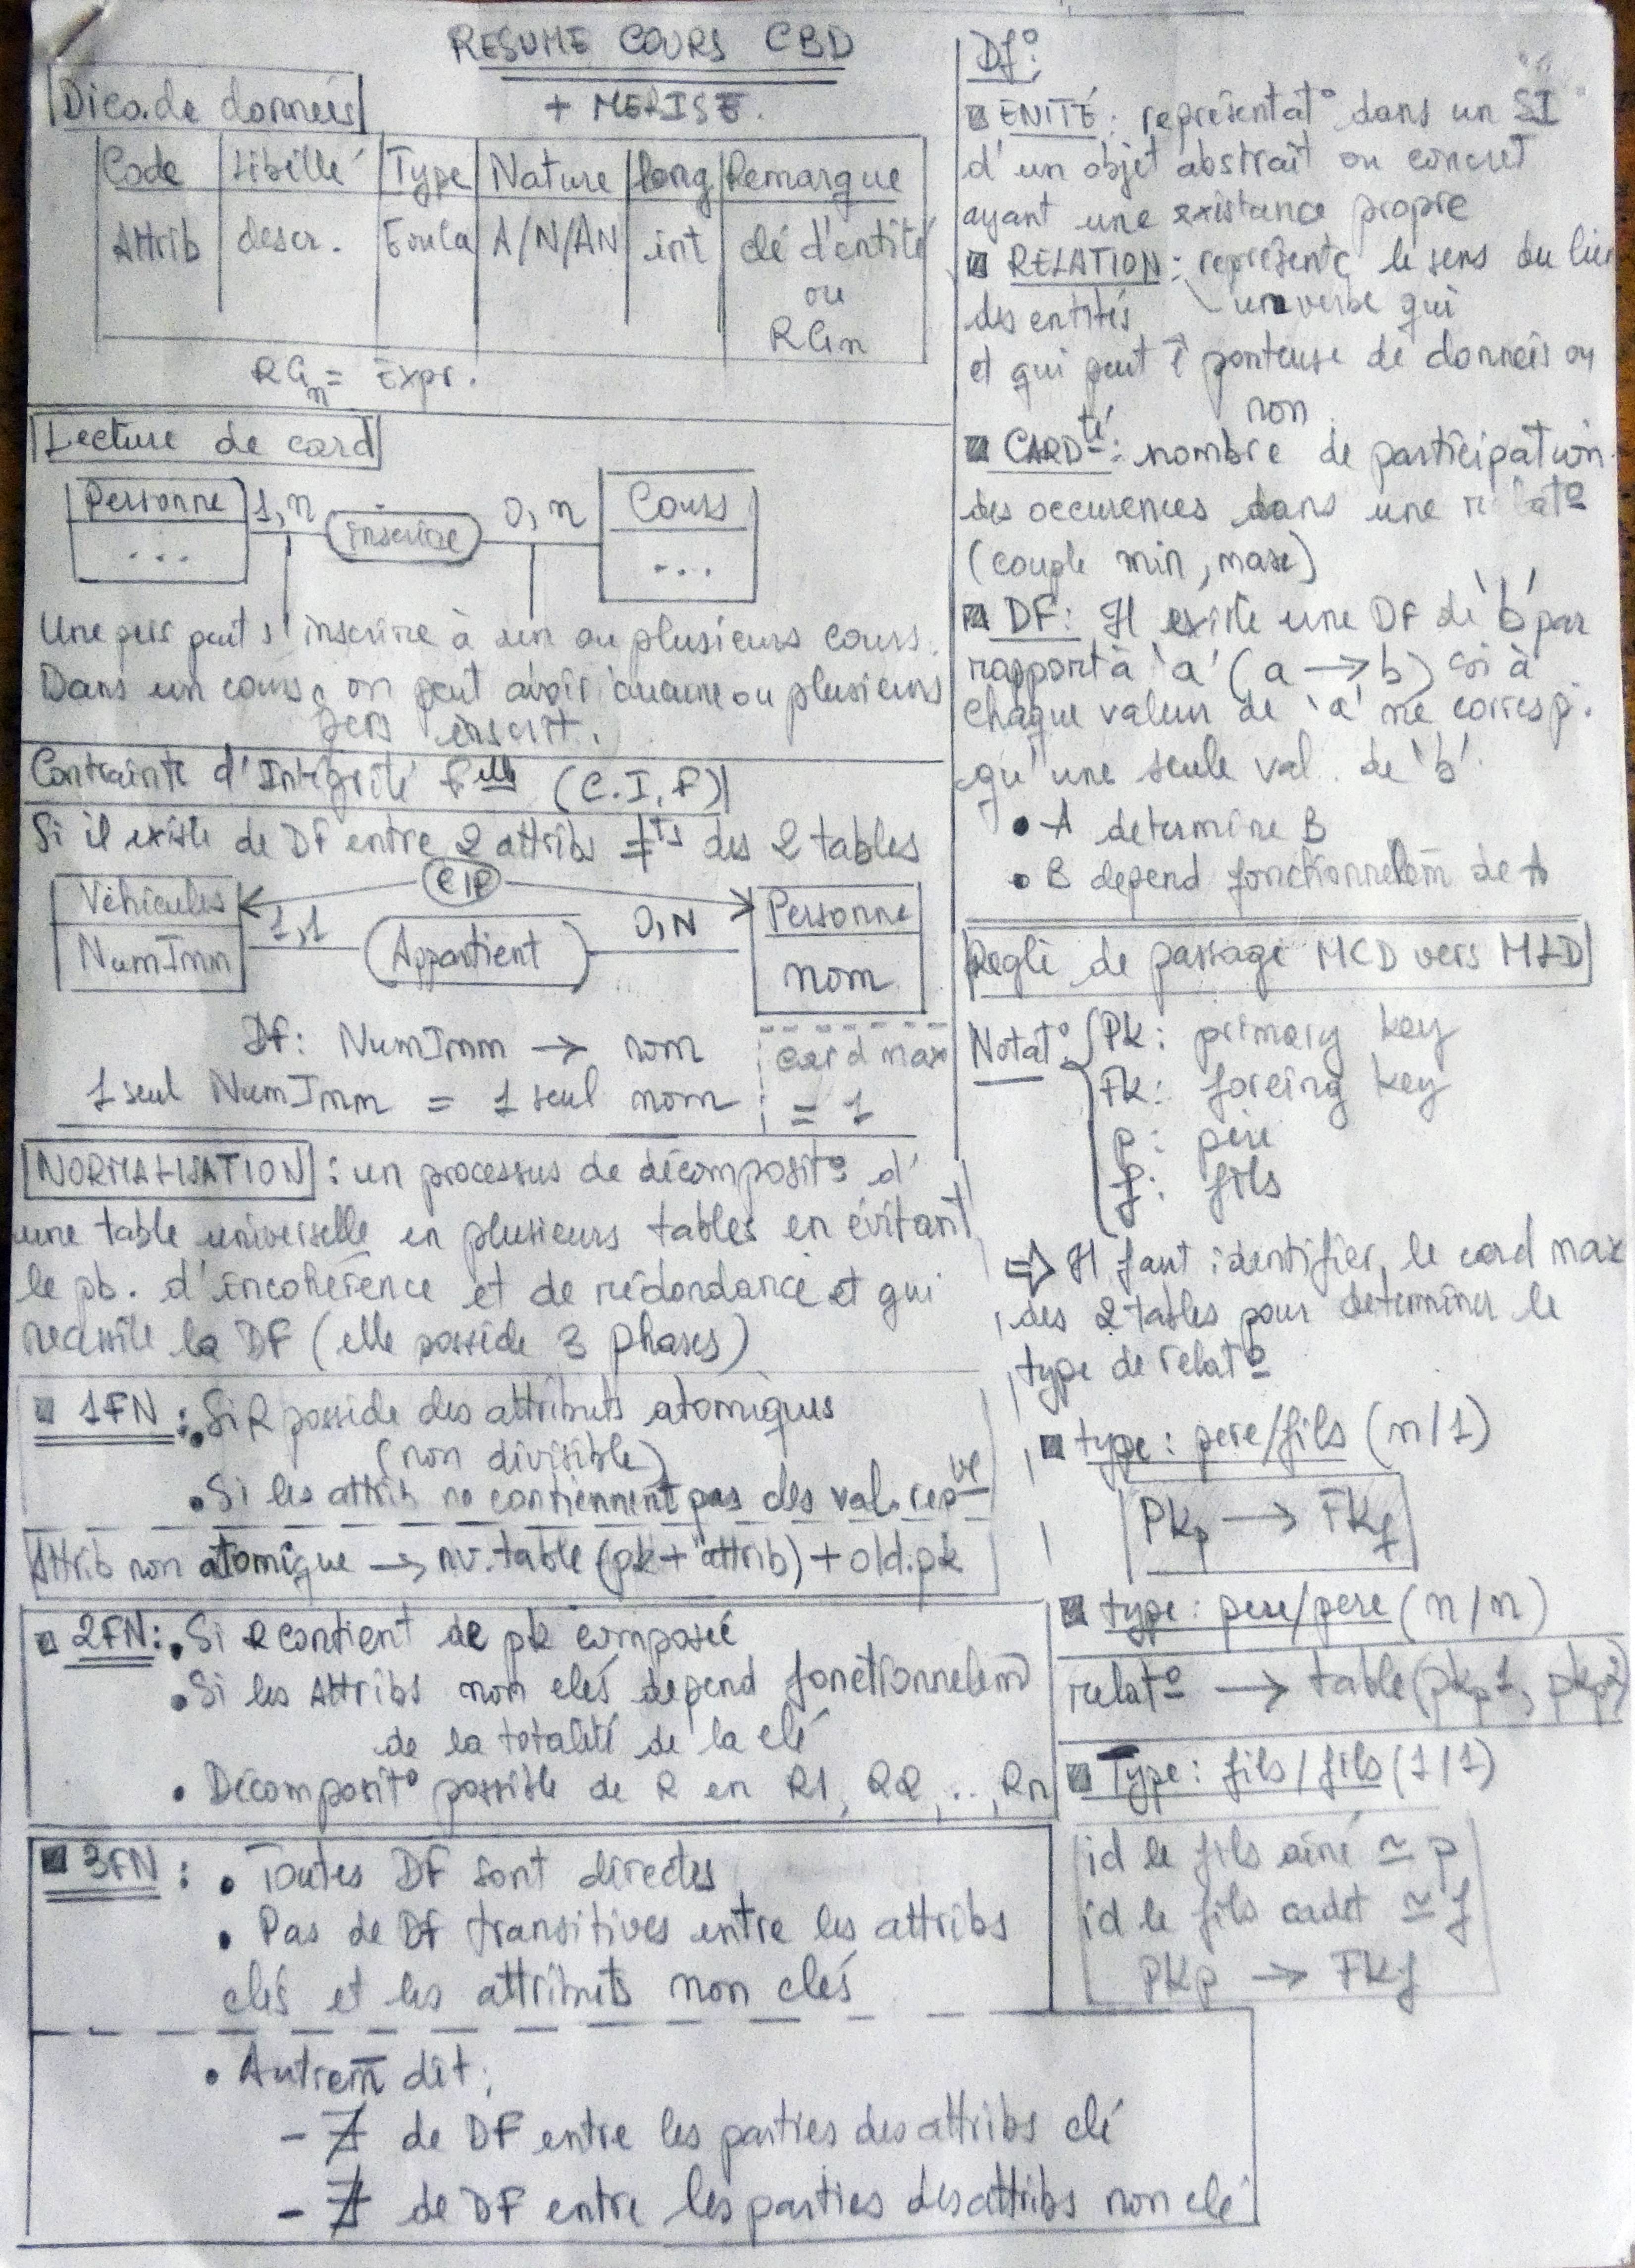 RESUME COURS CBD
+ MERISE.
Dico.de données
Code Libéllé Type Nature long Remarque
Attrib descr. E ou Ca A/N/AN int clé d'entité
ou
RGn
RGn = Expr.
Lecture de card
Personne 1,n inscrire 0,n Cours
... ...
Une pers peut s'inscrire à un ou plusieurs cours.
Dans un cours, on peut avoir aucune ou plusieurs
pers inscrit.
Contrainte d'Intégrité flle (C.I.F)
Si il existe de DF entre 2 attribs ≠ts des 2 tables
CIF
Véhicules 1,1 Appartient 0,N Personne
NumImm nom
Df: NumImm → nom
1 seul NumImm = 1 seul nom
card max
= 1
NORMALISATION : un processus de décomposit° d'
une table universelle en plusieurs tables en évitant
le pb. d'incohérence et de rédondance et qui
necessite la DF (elle possède 3 phases)
1FN : • Si R possède des attributs atomiques
(non divisible)
• Si les attrib ne contiennent pas des val. repve
Attrib non atomique → nv.table (pk + "attrib) + old.pk
2FN: • Si R contient de pk composée
• Si les Attribs non clés depend fonctionnelem̄
de la totalité de la clé
• Décomposit° possible de R en R1, R2, .., Rn
3FN : • Toutes DF sont directes
• Pas de Df transitives entre les attribs
clés et les attributs non clés
• Autrem̄ dit,
- ∄ de DF entre les parties des attribs clé
- ∄ de DF entre les parties des attribs non clé
Df°:
ENITÉ : représentat° dans un SI
d'un objet abstrait ou concret
ayant une existance propre
RELATION : représente le sens du lien
des entités \ un verbe qui
et qui peut ê porteuse de données ou
non
CARDté : nombre de participation
des occurences dans une relat°
(couple min, max)
DF: Il existe une DF de 'b' par
rapport à 'a' (a → b) si à
chaque valeur de 'a' ne corresp.
qu'une seule val. de 'b'.
• A determine B
• B depend fonctionnelem̄ de A
Regle de passage MCD vers MLD
Notat° { PK: primary key
FK: foreing key
p : père
f : fils
⇒ Il faut identifier le card max
des 2 tables pour determiner le
type de relat°
type : pere/fils (n/1)
PKp → FKf
type : pere/pere (n/n)
relat° → table(pkp1, pkp2)
Type : fils/fils (1/1)
id le fils ainé ≃ p
id le fils cadet ≃ f
PKp → FKf